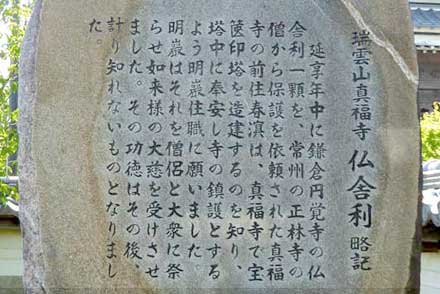 瑞雲山真福寺 仏舎利 略記
延享年中に鎌倉円覚寺の仏
舎利一顆を、常州の正林寺の
僧から保護を依頼された真福
寺の前住春溟は、真福寺で宝
篋印塔を造建するのを知り、
塔中に奉安し寺の鎮護とする
よう明巌住職に願いました。
明巌はそれを僧侶と大衆に祭
らせ如来様の大慈を受けさせ
ました。その功徳はその後、
計り知れないものとなりまし
た。